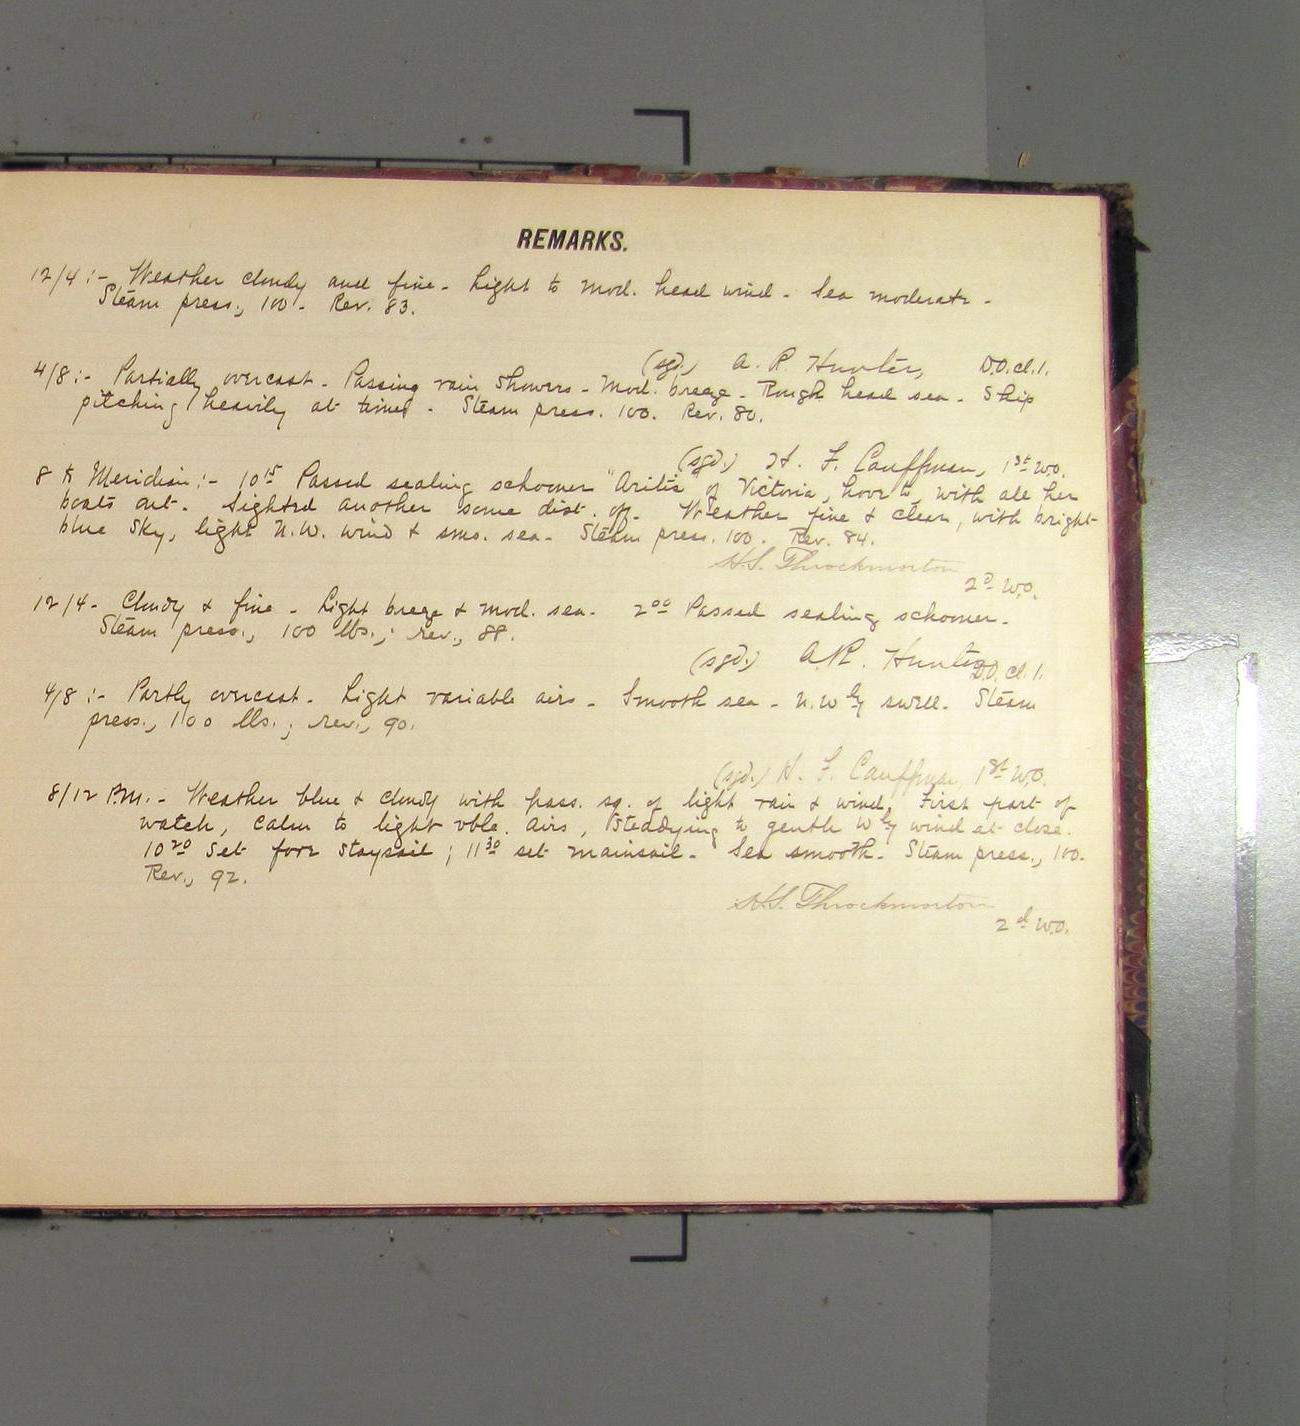 REMARKS.
12/4:- Weather cloudy and fine - Light to mod. head wind - Sea moderate -
Steam press., 100 - Rev. 83.
(sgd.) A. R. Hunter, D.O.cl.1.
4/8:- Partially overcast - Passing rain showers - Mod. breeze - Rough head sea - Ship
pitching heavily at times - Steam press. 100. Rev. 80.
(sgd.) H. F. Cauffman, 1st W.O.
8 to Meridian:- 10 15 Passed sealing schooner "Aritis" of Victoria, hove to, with all her
boats out. Sighted another some dist. off. Weather fine & clear, with bright
blue sky, light N.W. wind & smo. sea - Steam press. 100. Rev. 84.
H.S. Throckmorton
2d W.O.
12/4 - Cloudy & fine - Light breeze & mod. sea - 2 00 Passed sealing schooner -
Steam press., 100 lbs.; rev., 88.
(sgd.) A.R. Hunter D.O.cl.1.
4/8:- Partly overcast - Light variable airs - Smooth sea - N.W'ly swell - Steam
press., 100 lbs.; rev., 90.
(sgd.) H. F. Cauffman, 1st W.O.
8/12 P.M. - Weather blue & cloudy with pass. sq. of light rain & wind, First part of
watch, calm to light vble. airs, steadying to gentle W'ly wind at close.
10 20 Set fore staysail; 11 30 set mainsail - Sea smooth. Steam press., 100.
Rev., 92.
H.S. Throckmorton
2d W.O.